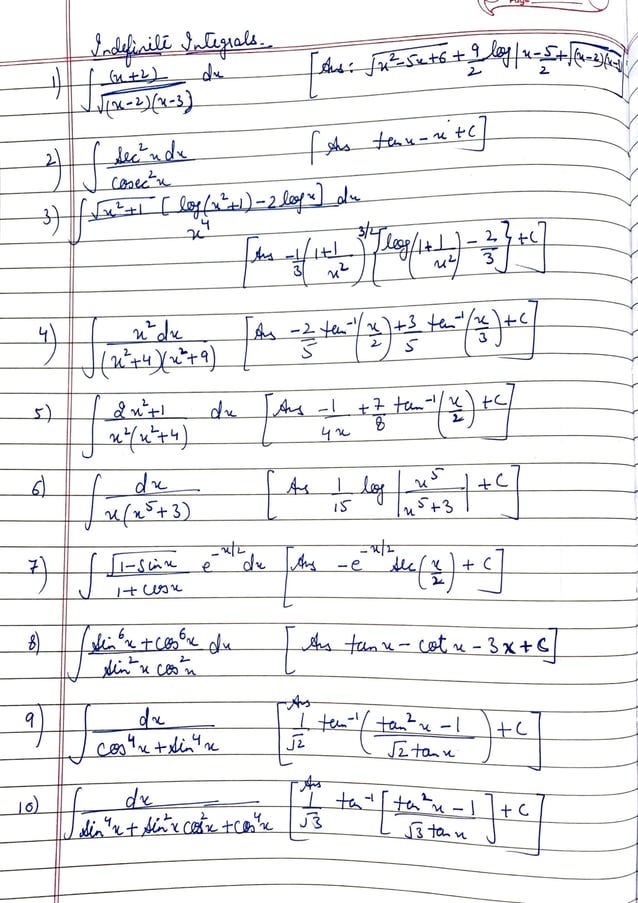 Indefinite Integrals.
1) ∫ (x+2)/√((x-2)(x-3)) dx [Ans: √(x²-5x+6) + 9/2 log|x-5/2+√((x-2)(x-3)
2) ∫ sec²x dx/cosec²x [Ans tanx-x+C]
3) ∫ √(x²+1) [log(x²+1)-2logx]/x⁴ dx
[Ans -1/3 (1+1/x²)^3/2 {log(1+1/x²) - 2/3}+C]
4) ∫ x²dx/(x²+4)(x²+9) [Ans -2/5 tan⁻¹(x/2)+3/5 tan⁻¹(x/3)+C]
5) ∫ 2x²+1/x²(x²+4) dx [Ans -1/4x +7/8 tan⁻¹(x/2)+C]
6) ∫ dx/x(x⁵+3) [As 1/15 log|x⁵/x⁵+3|+C]
7) ∫ √(1-sinx)/1+cosx e^-x/2 dx [Ans -e^-x/2 sec(x/2)+C]
8) ∫ sin⁶x+cos⁶x/sin²x cos²x dx [Ans tanx-cotx-3x+C]
9) ∫ dx/cos⁴x+sin⁴x [Ans 1/√2 tan⁻¹(tan²x-1/√2 tanx)+C]
10) ∫ dx/sin⁴x+sin²x cos²x+cos⁴x [Ans 1/√3 ta⁻¹[tan²x-1/√3 tanx]+C]